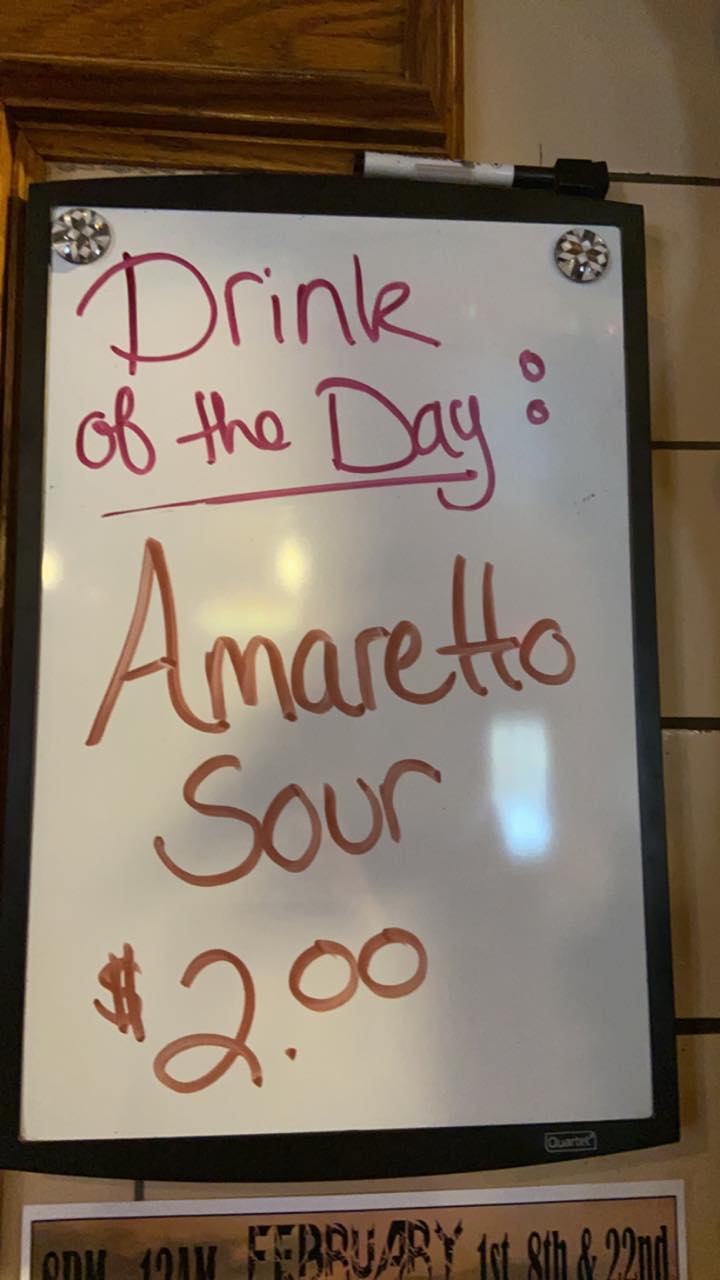 Drink
of the Day:
Amaretto
Sour
$2.00
Quartet
8PM 12AM FEBRUARY 1st, 8th & 22nd